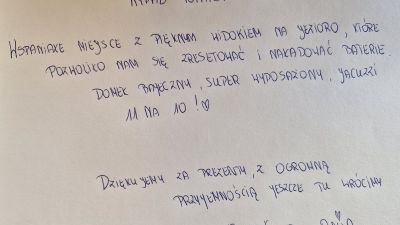 WSPANIAŁE MIEJSCE Z PIĘKNYM WIDOKIEM NA JEZIORO, KTÓRE
POZWOLIŁO NAM SIĘ ZRESETOWAĆ I NAŁADOWAĆ BATERIE.
DOMEK BAJECZNY, SUPER WYPOSAŻONY, JACUZZI
11 NA 10! ♡
DZIĘKUJEMY ZA PREZENTY, Z OGROMNĄ
PRZYJEMNOŚCIĄ JESZCZE TU WRÓCIMY